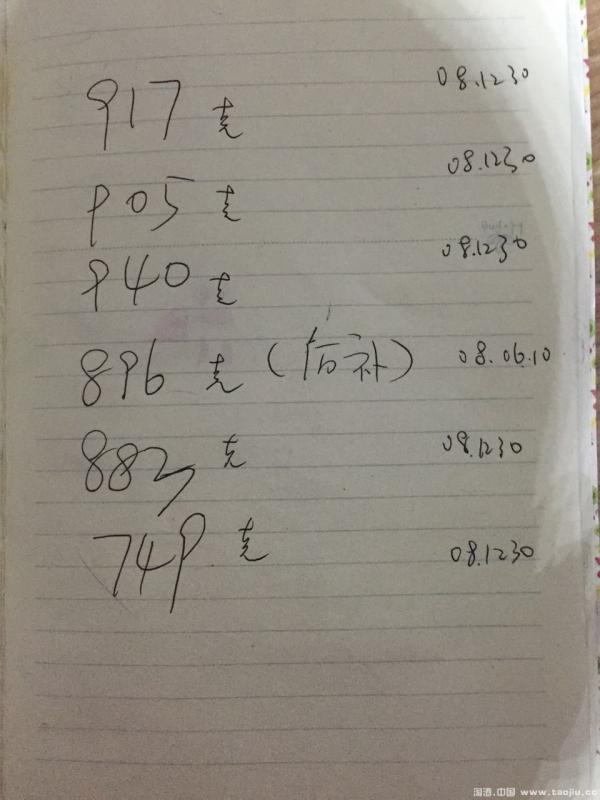 917克 08.1230
905克 08.1230
940克 08.1230
896克(后补) 08.06.10
883克 08.1230
749克 08.1230
淘酒.中国 www.taojiu.cc